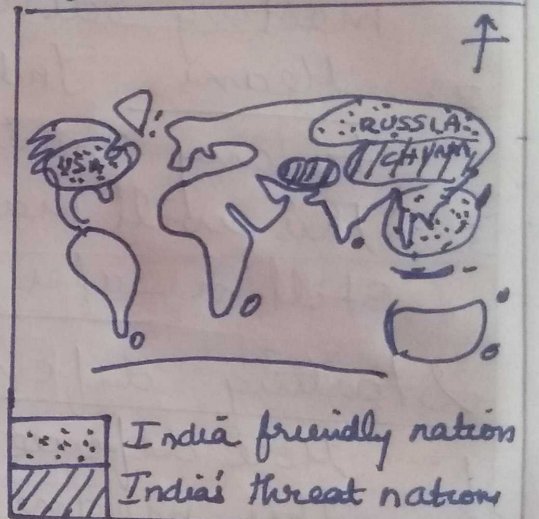 RUSSLA
USA
CHYNA
India friendly nation
India's threat nations